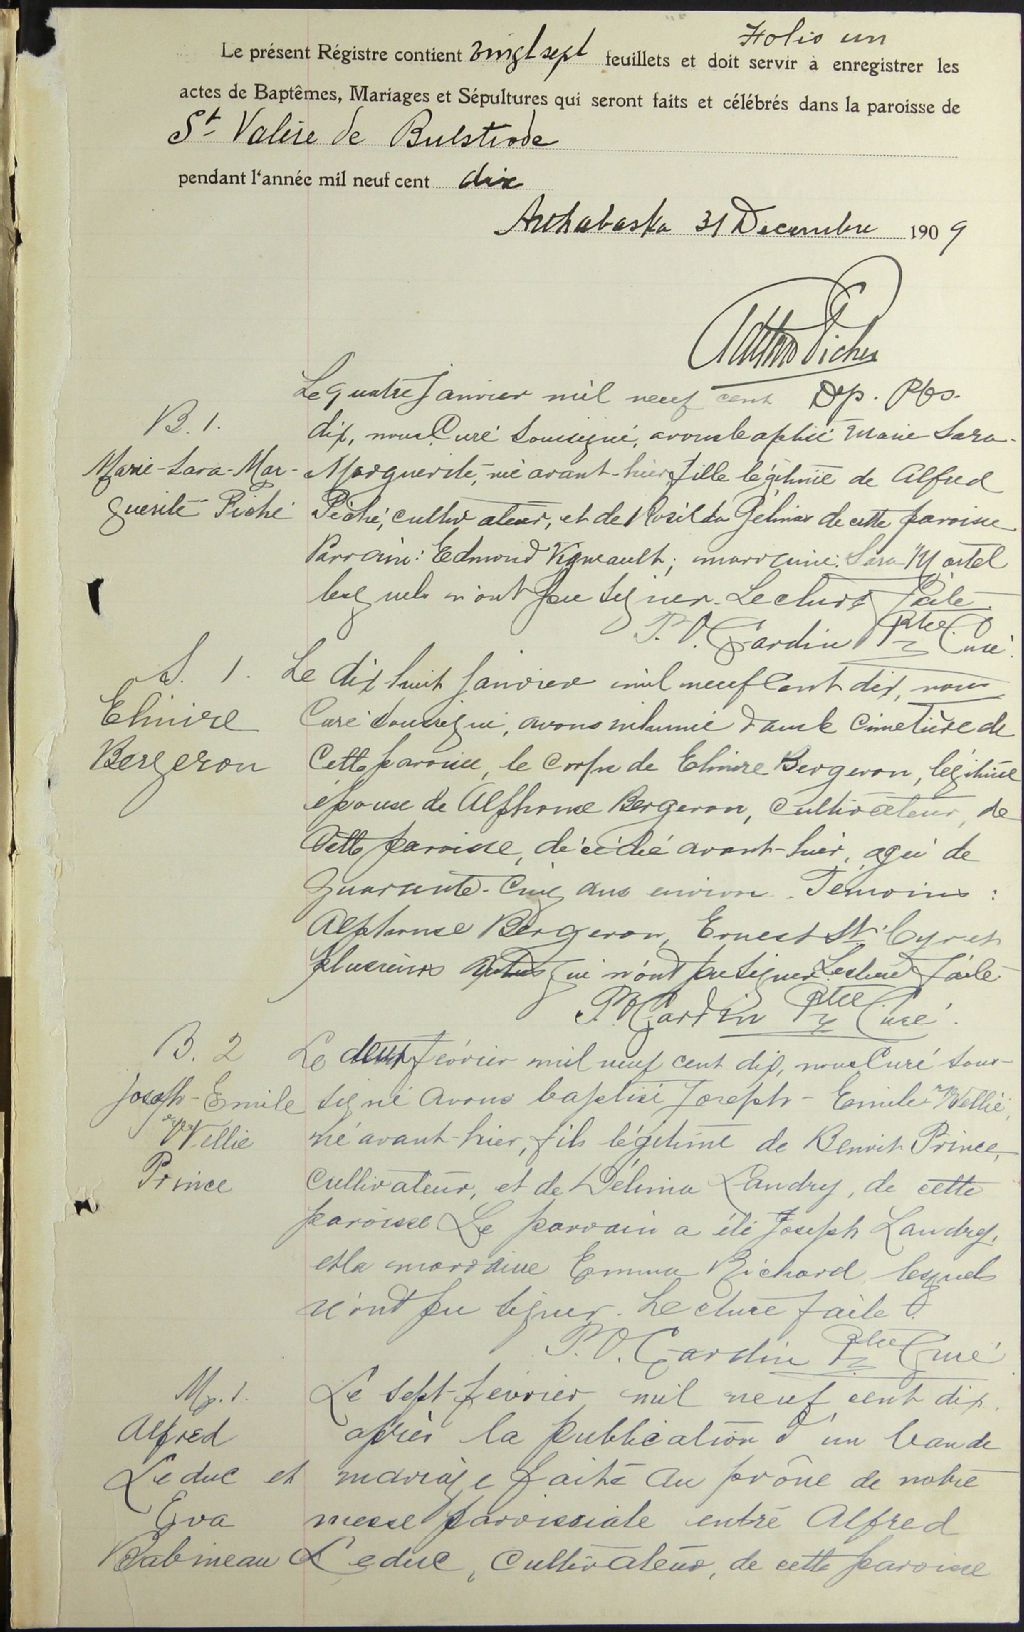 Folio un
Le présent Régistre contient vingt sept feuillets et doit servir à enregistrer les
actes de Baptêmes, Mariages et Sépultures qui seront faits et célébrés dans la paroisse de
St Valère de Bulstrode
pendant l'année mil neuf cent dix
Arthabaska 31 Decembre 1909
Picher
Dep. P
Le quatre Janvier mil neuf cent
B. 1.
dix, nous Curé soussigné, avons baptisé Marie Sara-
Marie-Sara-Mar-
Marguerite, née avant-hier, fille légitime de Alfred
guerite Piché
Piché, cultivateur, et de Rosilda Gélinas de cette paroisse
Parrain: Edmond Vigneault; marraine: Sara Martel
lesquels n'ont pu signer. Lecture faite
P. O. Gardin Ptre Curé.
S. 1.
Le dix huit Janvier mil neuf cent dix, nous
Elmire
Curé soussigné, avons inhumé dans le cimetière de
Bergeron
cette paroisse, le corps de Elmire Bergeron, légitime
épouse de Alphonse Bergeron, cultivateur, de
cette paroisse, décédée avant-hier, agée de
quarante-cinq ans environ. Témoins:
Alphonse Bergeron, Ernest St Cyr et
plusieurs autres qui n'ont pu signer. Lecture faite
P. O. Gardin Ptre Curé.
B. 2
Le deux février mil neuf cent dix, nous Curé sous-
Joseph-Emile
signé avons baptisé Joseph-Emile-Wellie,
Wellie
né avant-hier, fils légitime de Benoit Prince,
Prince
cultivateur, et de Délima Landry, de cette
paroisse Le parrain a été Joseph Landry,
et la marraine Emma Richard lesquels
n'ont pu signer. Lecture faite
P. O. Gardin Ptre Curé
M. 1.
Le sept février mil neuf cent dix.
Alfred
après la publication d'un ban de
Leduc et
mariage faite au prône de notre
Eva
messe paroissiale entre Alfred
Babineau
Leduc, cultivateur, de cette paroisse